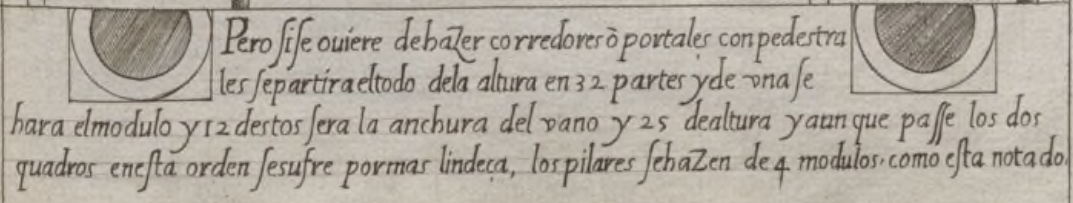 Pero si se ouiere de hazer corredores ò portales con pedestra
les se partira el todo dela altura en 32 partes y de vna se
hara el modulo y 12 destos sera la anchura del vano y 25 de altura y aun que passe los dos
quadros en esta orden se sufre por mas lindeça, los pilares se hazen de 4 modulos. como esta notado.